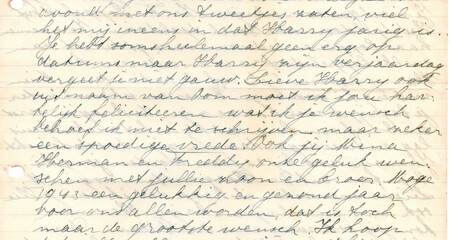 avond met ons tweetjes zaten, viel
het mij ineens in dat Harry jarig is.
Je hebt soms heelemaal geen erg op
datums maar Harry zijn verjaardag
vergeet je niet gauw. Lieve Harry ook
uit naam van oom moet ik jou har-
telijk feliciteeren wat ik je wensch
behoef ik niet te schrijven maar zeker
een spoedige vrede. Ook jij Mina
Herman en Freddy onze geluk wen-
schen met jullie zoon en broer. Moge
1943 een gelukkig en gezond jaar
voor ons allen worden, dat is toch
maar de grootste wensch. Ik hoop